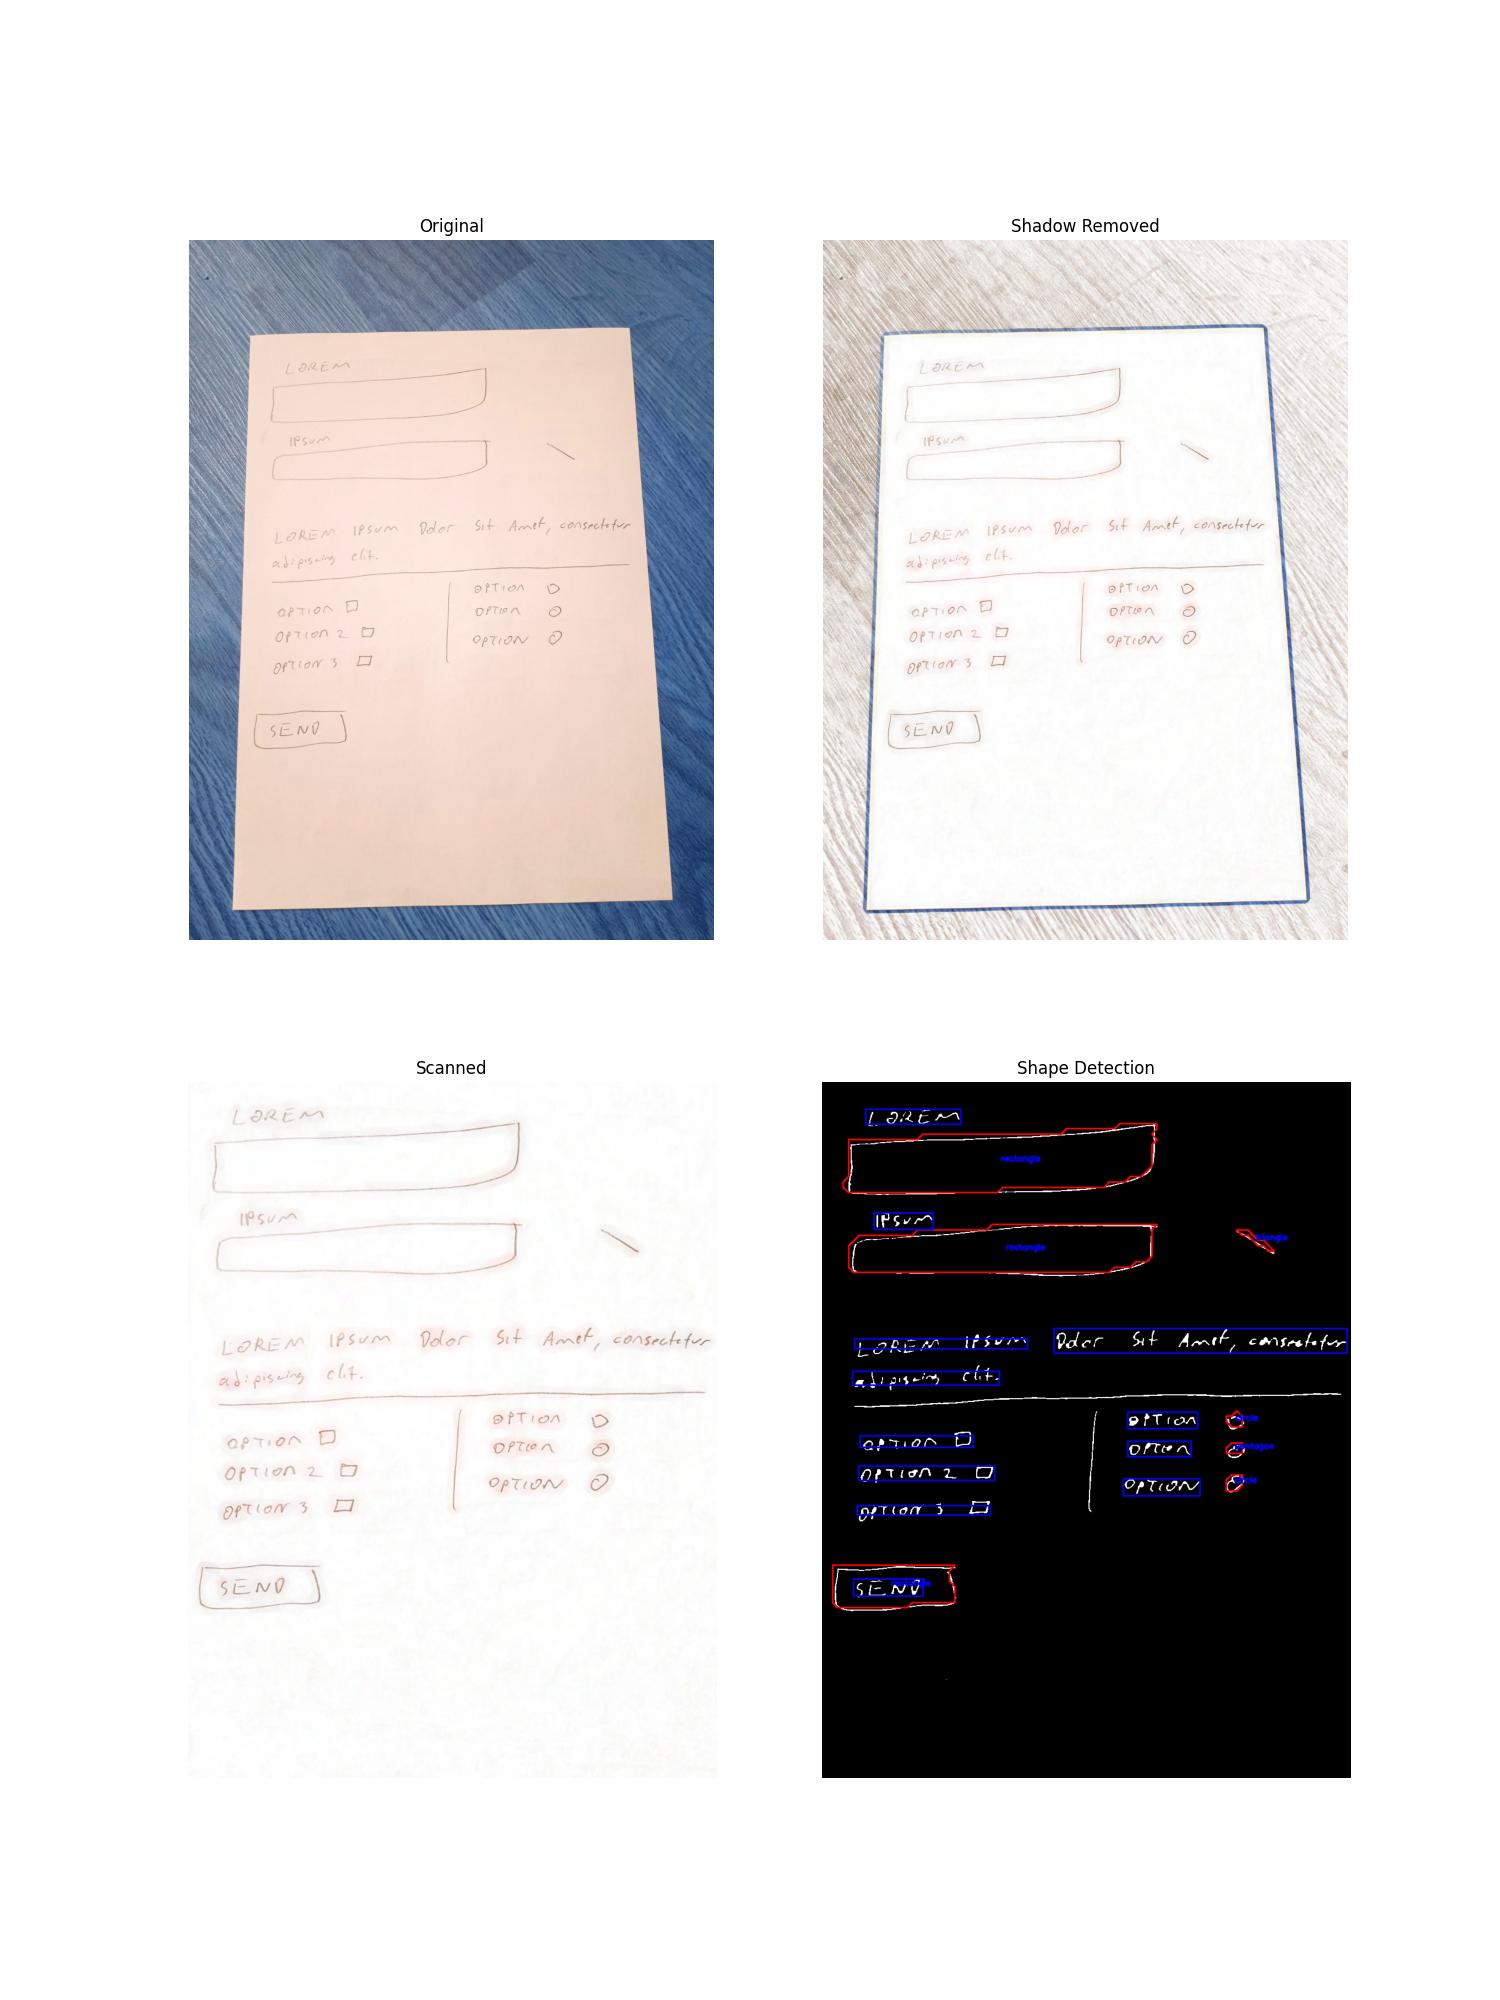 Original
LOREM
IPSUM
LOREM IPSUM Dolor Sit Amet, consectetur
adipiscing elit.
OPTION
OPTION 2
OPTION 3
OPTION
OPTION
OPTION
SEND
Shadow Removed
LOREM
IPSUM
LOREM IPSUM Dolor Sit Amet, consectetur
adipiscing elit.
OPTION
OPTION 2
OPTION 3
OPTION
OPTION
OPTION
SEND
Scanned
LOREM
IPSUM
LOREM IPSUM Dolor Sit Amet, consectetur
adipiscing elit.
OPTION
OPTION 2
OPTION 3
OPTION
OPTION
OPTION
SEND
Shape Detection
LOREM
rectangle
IPSUM
rectangle
triangle
LOREM IPSUM Dolor Sit Amet, consectetur
adipiscing elit.
OPTION
OPTION 2
OPTION 3
OPTION
OPTION
OPTION
SEND